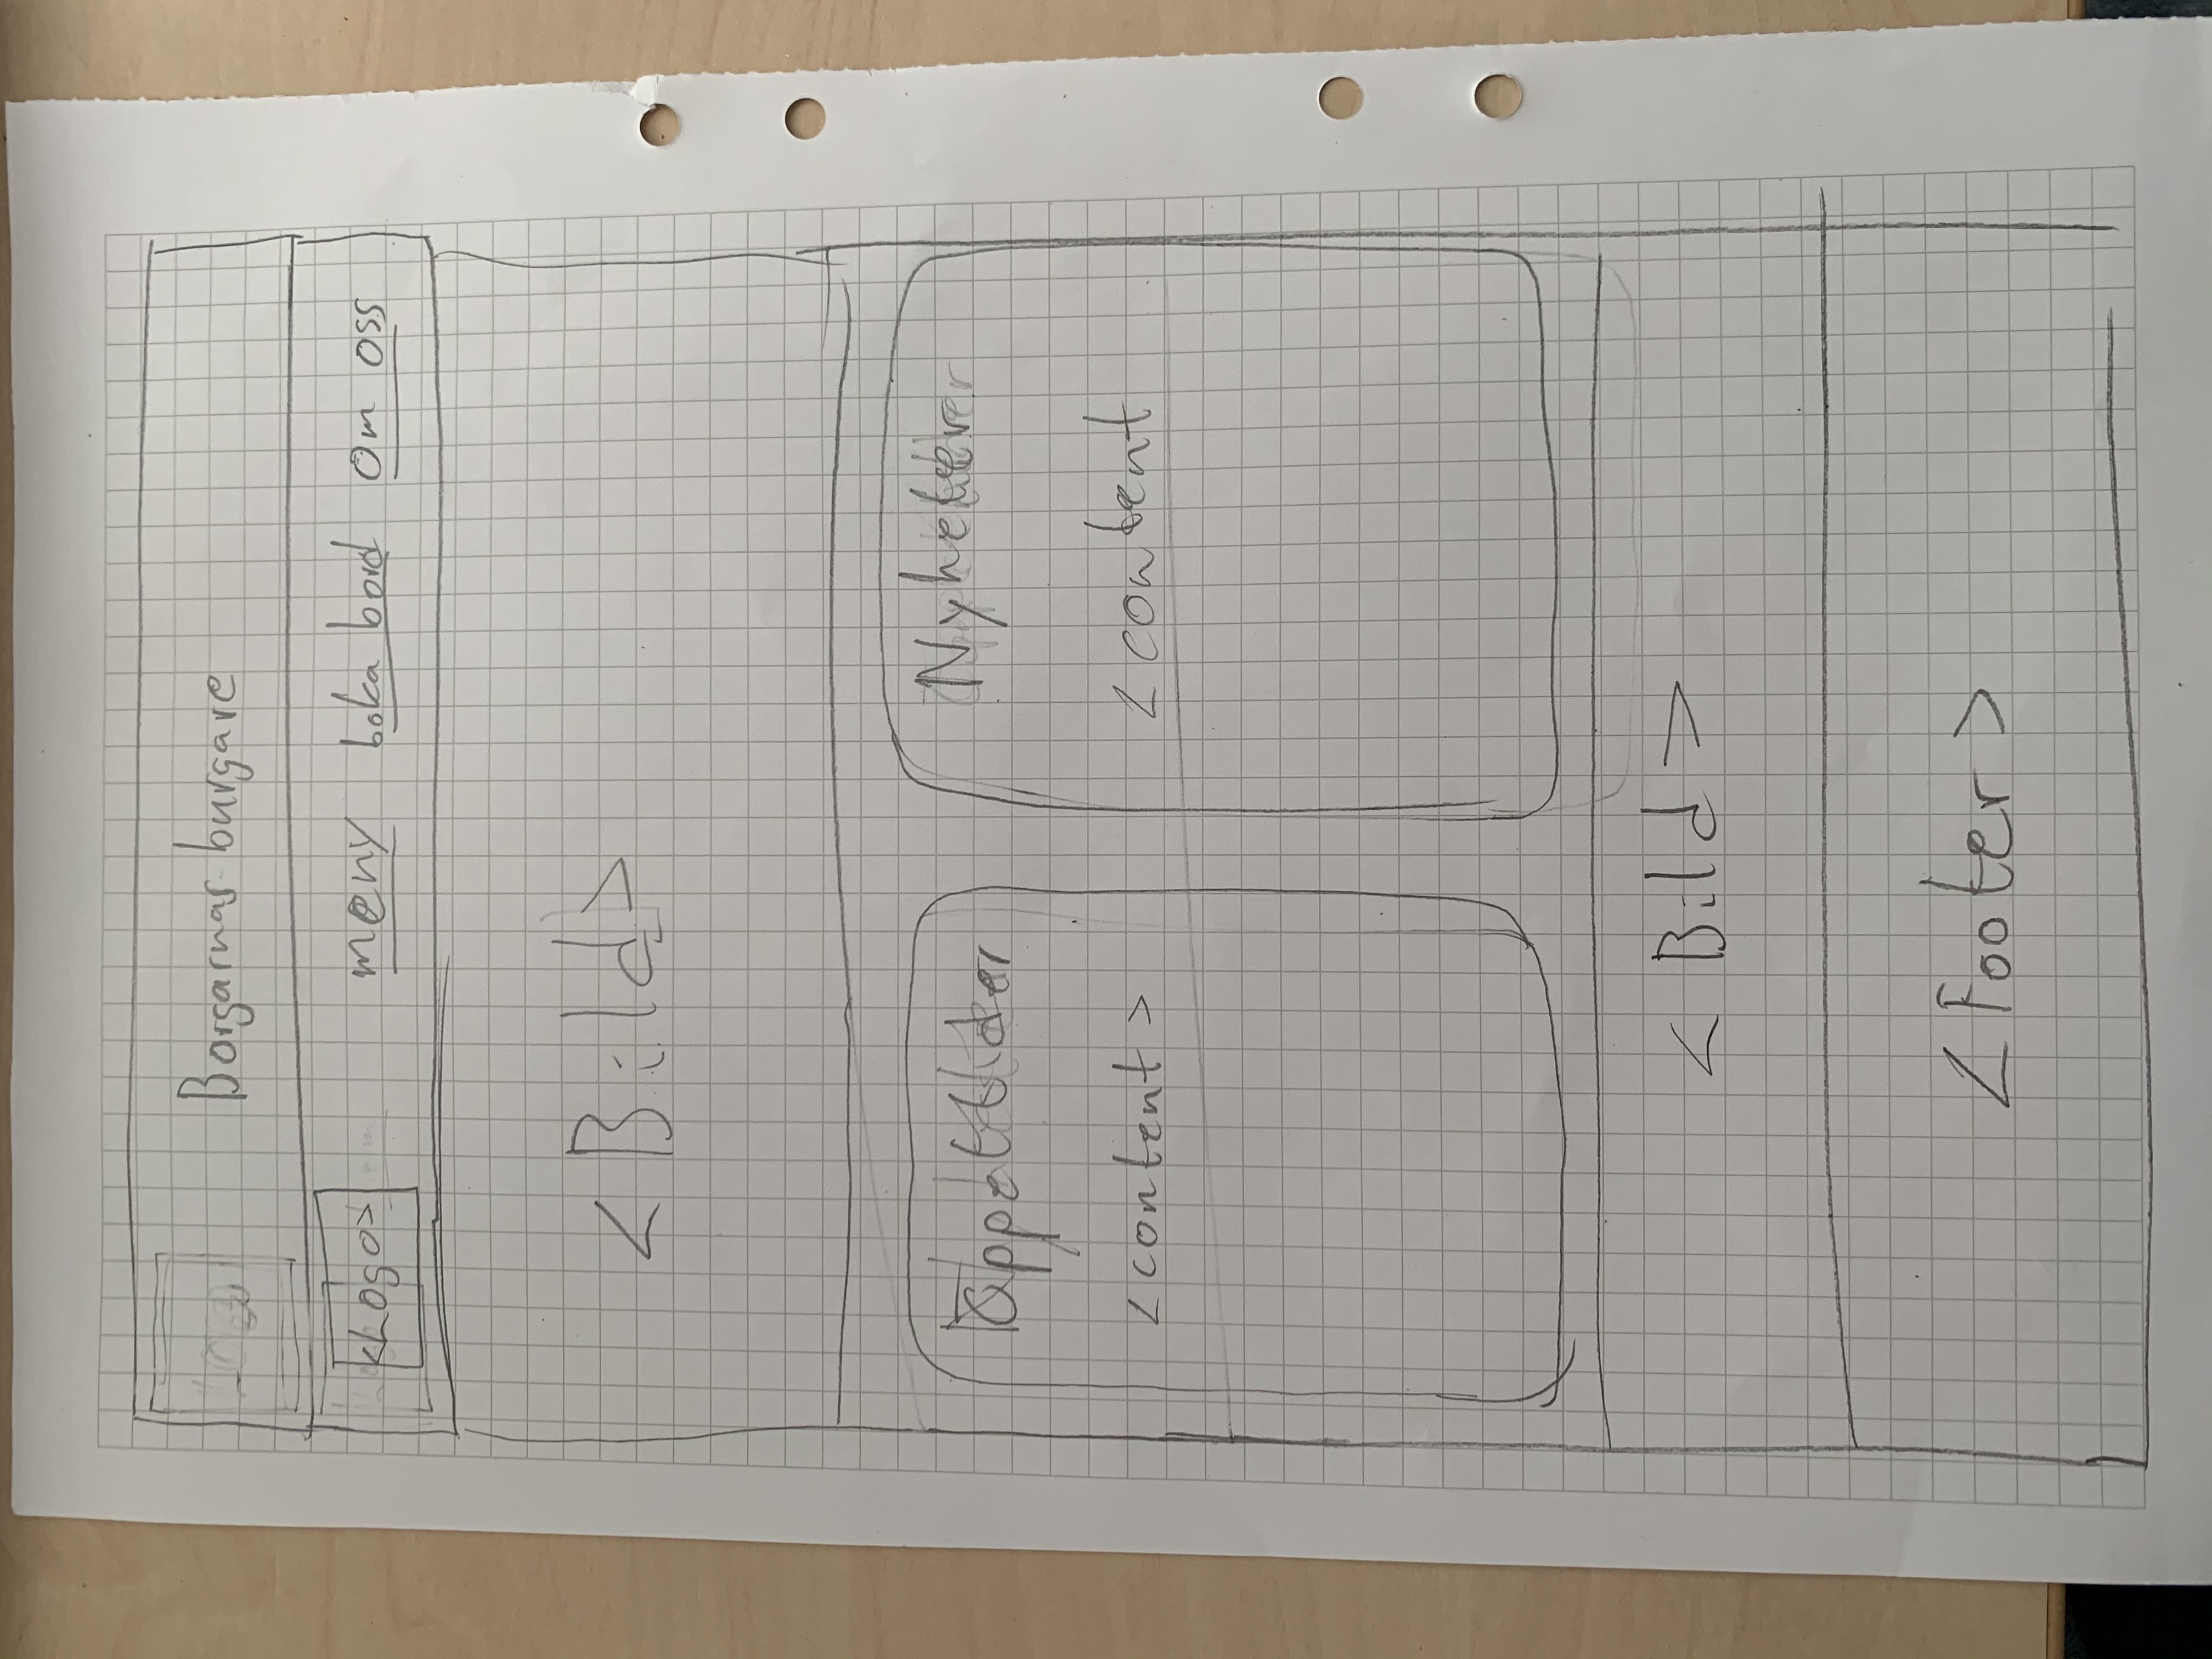 Borgarnas burgare
<Logo> meny boka bord Om oss
<Bild>
Öppettider
<content>
Nyheter
<content
<Bild>
<Footer>